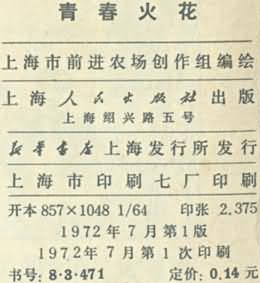 青春火花
上海市前进农场创作组编绘
上海人民出版社出版
上海绍兴路五号
新华书店上海发行所发行
上海市印刷七厂印刷
开本 857×1048 1/64 印张 2.375
1972年7月第1版
1972年7月第1次印刷
书号：8·3·471 定价：0.14元